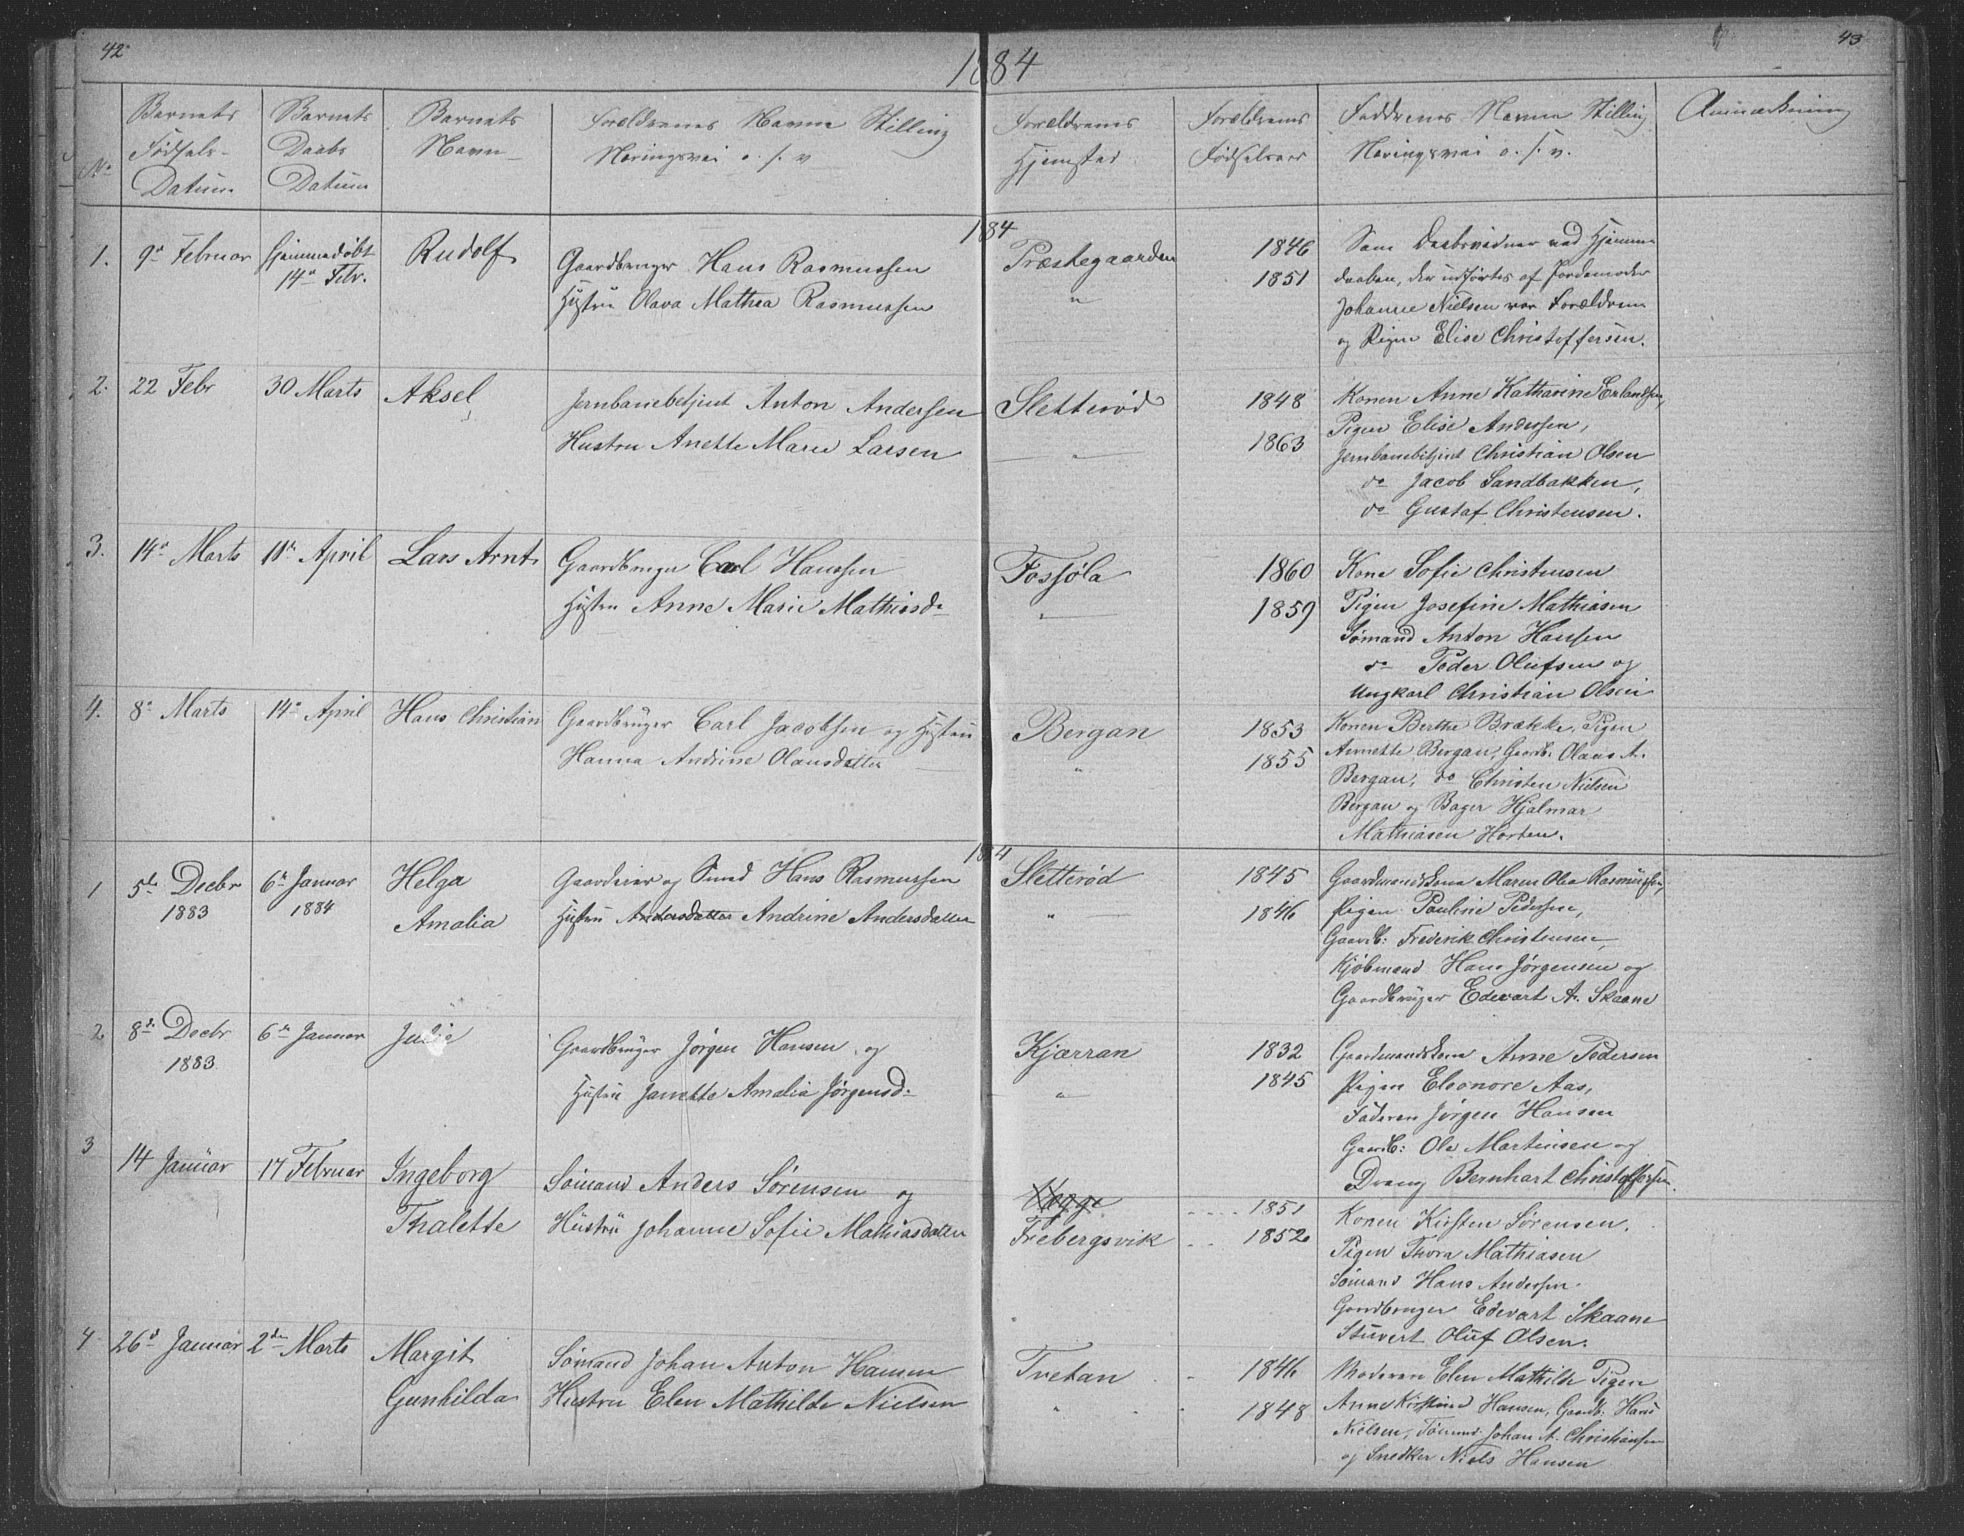 42
43
1884
No
Barnets Fødsels-Datum
Barnets Daabs Datum
Barnets Navn
Forældrenes Navne Stilling Næringsvei o. s. v
Forældrenes Hjemsted
Forældrenes Fødselsaar
Faddrenes Navne Stilling Næringsvei o. s. v.
Anmærkning
1884
1. 9de Februar Hjemmedøbt Rudolf Gaardbruger Hans Rasmussen Præstegaarden 1846 Som Daabsvidner ved Hjemme
14de Febr. Hustru Olava Mathea Rasmussen " 1851 daaben, der udførtes af Jordemoder
Johanne Nielsen var Forældrene
og Pigen Elise Christoffersen.
2. 22 Febr 30 Marts Aksel Jernbanebetjent Anton Andersen Sletterød 1848 Konen Anne Katharine Erlandsen,
Hustru Anette Marie Larsen " 1863 Pigen Elise Andersen,
Jernbanebetjent Christian Olsen
do Jacob Sandbakken,
do Gustaf Christensen.
3. 14de Marts April Lars Arnt Gaardbruger Carl Hanssen Fossjøla 1860 Kone Sofie Christensen
Hustru Anne Marie Mathiasd. " 1859 Pigen Josefine Mathiasen
Sømand Anton Hansen
do Peder Olufsen og
Ungkarl Christian Olsen
4. 8de Marts 14de April Hans Christian Gaardbrüger Carl Jacobsen og Hustru Bergan 1853 Konen Berthe Brække, Pigen
Hanna Andrine Olausdatter " 1855 Annette Bergan, Gaardb. Olaus A.
Bergan, do Christen Nielsen
Bergan og Bager Hjalmar
Mathiasen Horten.
1884
1 5te Decbr 6te Januar Helga Gaardeier og Smed Hans Rasmussen Sletterød 1845 Gaardmandskona Maren Olea Rasmüssen,
1883 1884 Amalia Hustru Andersdatter Andrine Andersdatter " 1846 Pigen Pauline Pedersen,
Gaardb: Frederik Christensen,
Kjøbmand Hans Jørgensen og
Gaardbrüger Edevart A. Skaane
2 8de Decbr 6te Januar Julie Gaardbrüger Jørgen Hansen og Kjærran 1832 Gaardmandskona Anne Pedersen
1883 Hustru Janette Amalia Jørgensd: " 1845 Pigen Eleonore Aas,
Faderen Jørgen Hansen
Gaardb: Ole Martinsen og
Dreng Bernhart Christoffersen.
3 14 Januar 17 Februar Ingeborg Sømand Anders Sørensen og 1851 Konen Kirsten Sørensen,
Thalette Hüstrü Johanne Sofie Mathiasdatter Frebergsvik 1852 Pigen Thora Mathiasen
Sømand Hans Andersen
Gaardbruger Edevart Skaane
Stuvert Oluf Olsen.
4 26de Januar 2den Marts Margit Sømand Johan Anton Hansen Tvetan 1846 Moderen Elen Mathilde Pigen
Gunhilda Hustru Elen Mathilde Nielsen " 1848 Anne Kirstine Hansen, Gaardb. Hans
Nielsen, Sømand Johan A. Christiansen
og Snedker Niels Hansen